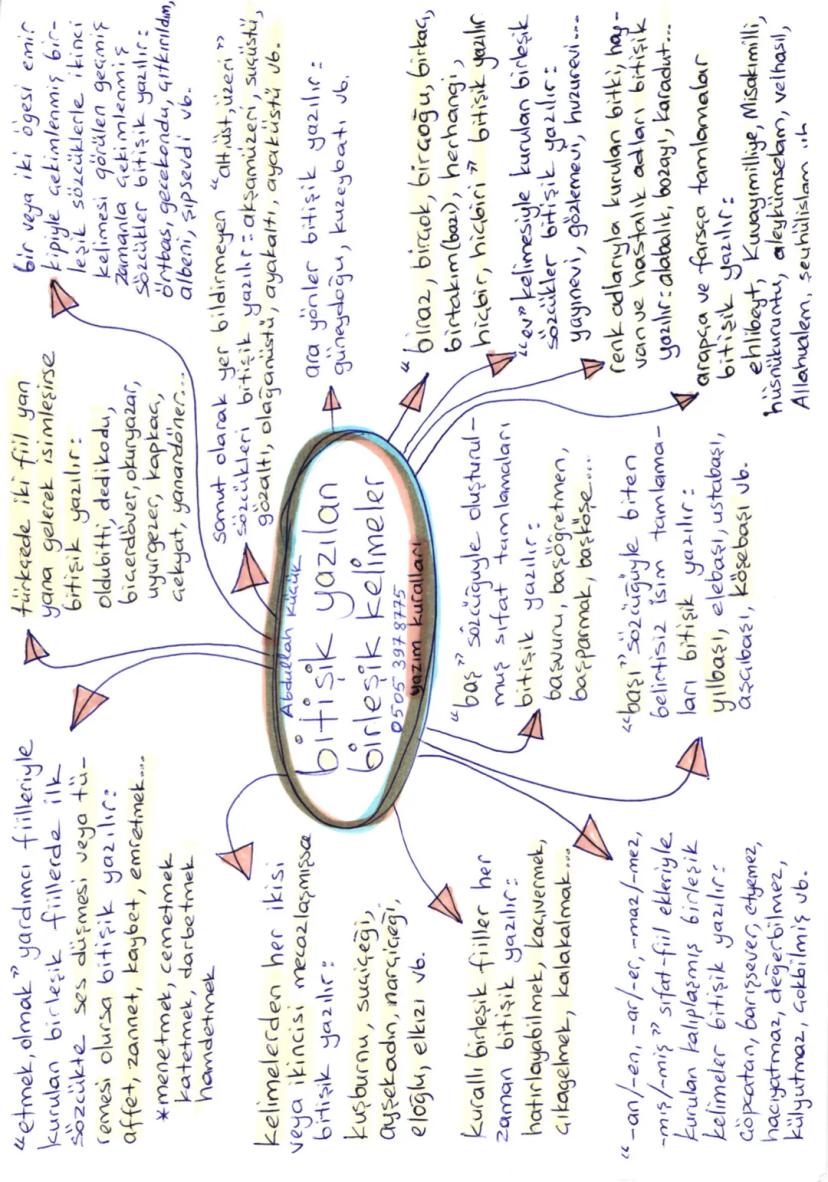 "etmek, olmak" yardımcı fiilleriyle
kurulan birleşik fiillerde ilk
sözcükte ses düşmesi veya tü-
remesi olursa bitişik yazılır:
affet, zannet, kaybet, emretmek...
*menetmek, cemetmek
katetmek, darbetmek
hamdetmek
türkçede iki fiil yan
yana gelerek isimleşirse
bitişik yazılır:
oldubitti, dedikodu,
biçerdöver, okuryazar,
uyurgezer, kapkaç,
çekyat, yanardöner...
bir veya iki ögesi emir
kipiyle çekimlenmiş bir-
leşik sözcüklerle ikinci
kelimesi görülen geçmiş
zamanla çekimlenmiş
sözcükler bitişik yazılır:
örtbas, gecekondu, çıtkırıldım,
albeni, şıpsevdi vb.
somut olarak yer bildirmeyen "alt, üst, üzeri"
sözcükleri bitişik yazılır: akşamüzeri, suçüstü,
gözaltı, olağanüstü, ayakaltı, ayaküstü vb.
Kelimelerden her ikisi
veya ikincisi mecazlaşmışsa
bitişik yazılır:
kuşburnu, suçiçeği,
ayşekadın, narçiçeği,
eloğlu, elkızı vb.
Abdullah Küçük
bitişik yazılan
birleşik kelimeler
0505 397 8775
yazım kuralları
ara yönler bitişik yazılır:
güneydoğu, kuzeybatı vb.
"biraz, birçok, birçoğu, birkaç,
birtakım(bazı), herhangi,
hiçbir, hiçbiri" bitişik yazılır
kurallı birleşik fiiller her
zaman bitişik yazılır:
hatırlayabilmek, kaçıvermek,
çıkagelmek, kalakalmak...
"baş" sözcüğüyle oluşturul-
muş sıfat tamlamaları
bitişik yazılır:
başvuru, başöğretmen,
başparmak, başköşe...
"ev" kelimesiyle kurulan birleşik
sözcükler bitişik yazılır:
yayınevi, gözlemevi, huzurevi...
renk adlarıyla kurulan bitki, hay-
van ve hastalık adları bitişik
yazılır: alabalık, bozayı, karadut...
"-an/-en, -ar/-er, -maz/-mez,
-mış/-miş" sıfat-fiil ekleriyle
kurulan kalıplaşmış birleşik
kelimeler bitişik yazılır:
çöpçatan, barışsever, etyemez,
hacıyatmaz, değerbilmez,
külyutmaz, çokbilmiş vb.
"başı" sözcüğüyle biten
belirtisiz isim tamlama-
ları bitişik yazılır:
yılbaşı, elebaşı, ustabaşı,
aşçıbaşı, köşebaşı vb.
arapça ve farsça tamlamalar
bitişik yazılır:
ehlibeyt, Kuvayımilliye, Misakımilli,
hüsnükuruntu, aleykümselam, velhasıl,
Allahualem, şeyhülislam